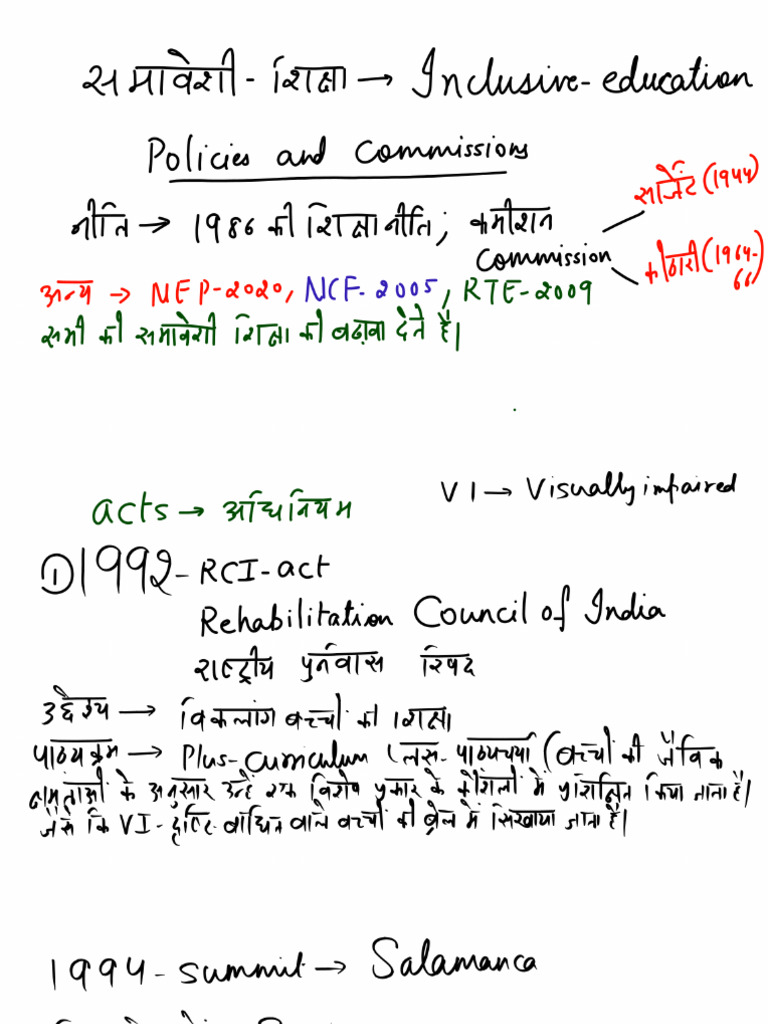 समावेशी - शिक्षा → Inclusive-education
Policies and Commissions
नीति → 1986 की शिक्षा नीति; कमीशन
Commission
सार्जेंट (1944)
कोठारी (1964-66)
अन्य → NEP-2020, NCF-2005, RTE-2009
सभी की समावेशी शिक्षा की बढ़ावा देते हैं।
VI → Visually impaired
acts → अधिनियम
① 1992 - RCI-act
Rehabilitation Council of India
राष्ट्रीय पुर्नवास रिषद
उद्देश्य → विकलांग बच्चों की शिक्षा
पाठ्यक्रम → Plus-Curriculum (लस-पाठ्यचर्या (बच्चों की जैविक
क्षमताओं के अनुसार उन्हें एक विशेष प्रकार के कौशलों में प्रशिक्षित किया जाता है।
जैसे कि VI-दृष्टि बाधित वाले बच्चों की ब्रेल में सिखाया जाता है।
1994 - summit → Salamanca